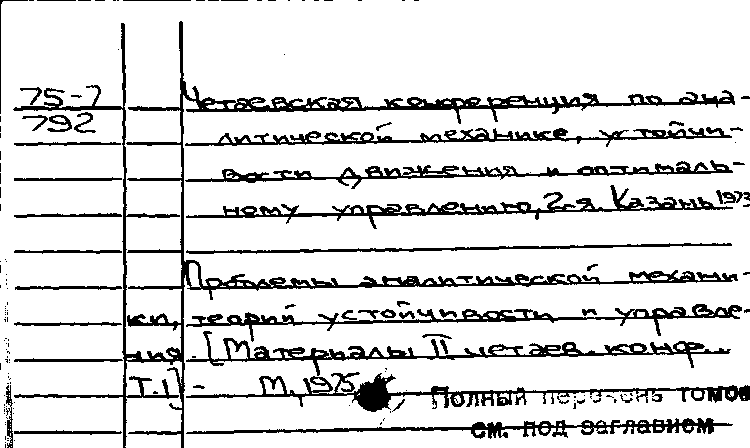 75-7
792
Четаевская конференция по ана-
литической механике, устойчи-
вости движения и оптималь-
ному управлению, 2-я. Казань 1973
Проблемы аналитической механи-
ки, теорий устойчивости и управле-
ния. [Материалы II четаев. конф.
Т.1] - М., 1975
Полный перечень томов
см. под заглавием